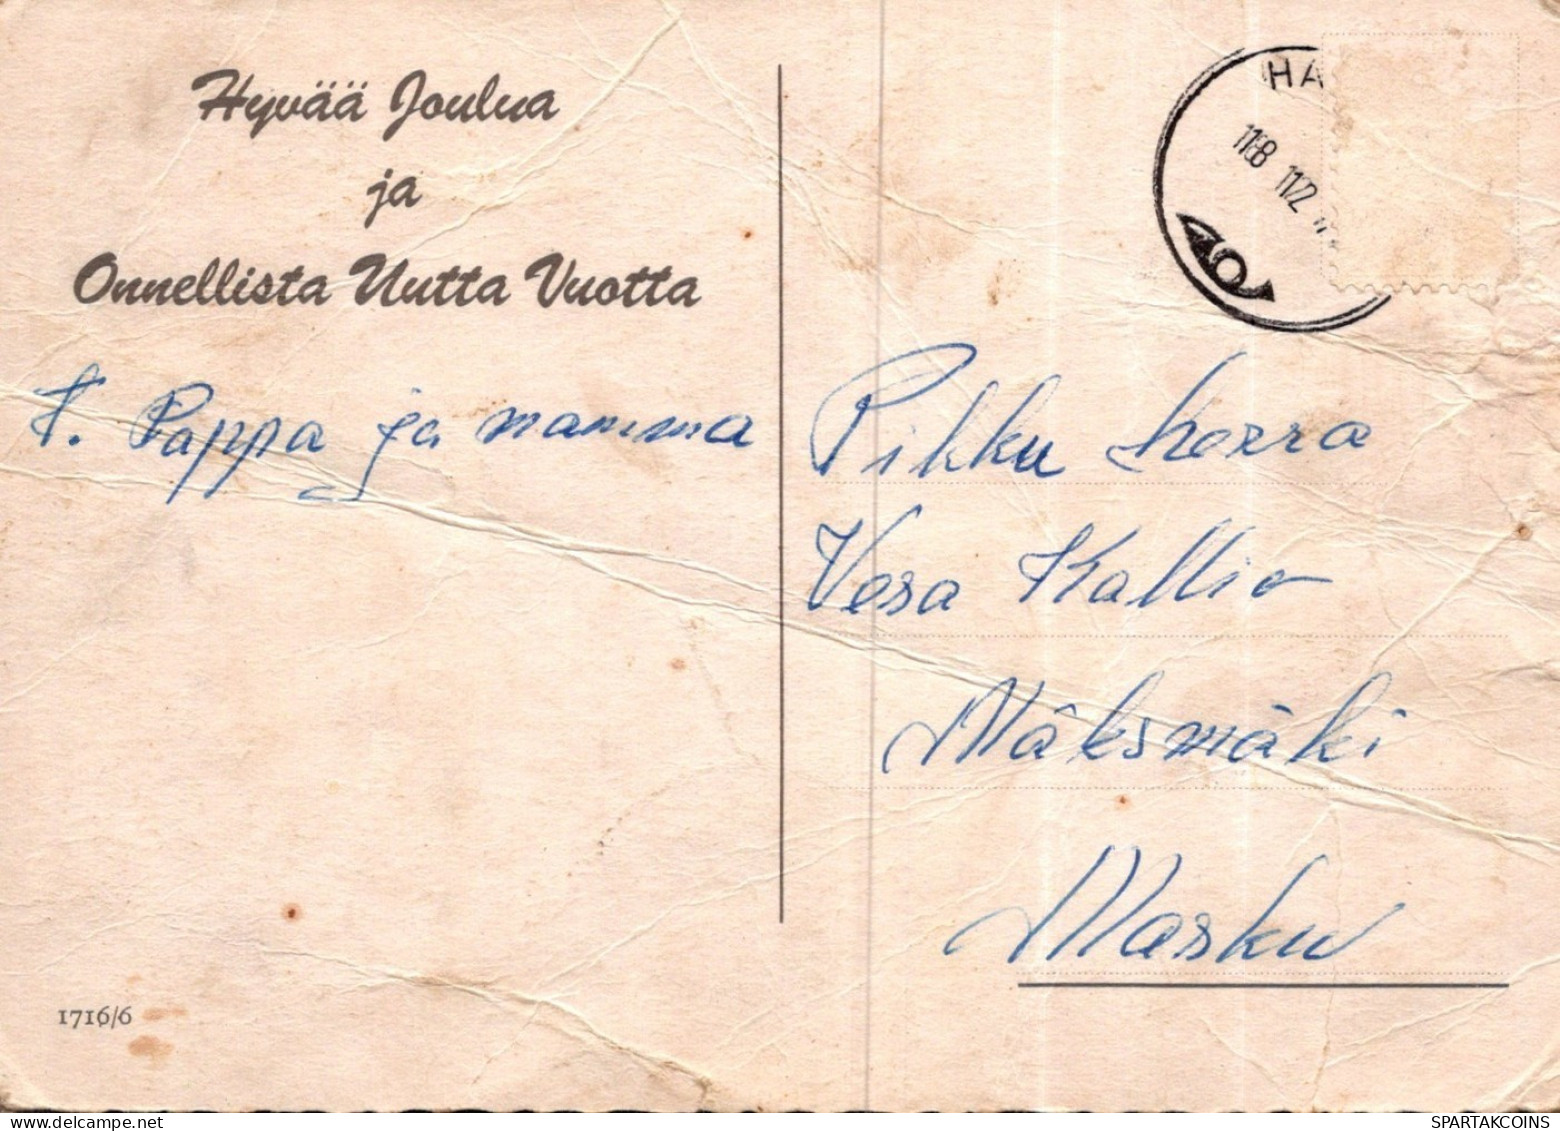 Hyvää Joulua
ja
Onnellista Uutta Vuotta
T. Pappa ja mamma
1716/6
HA
11.12
Pikku herra
Vesa Kallio
Mäksmäki
Masku
SPARTAKCOINS